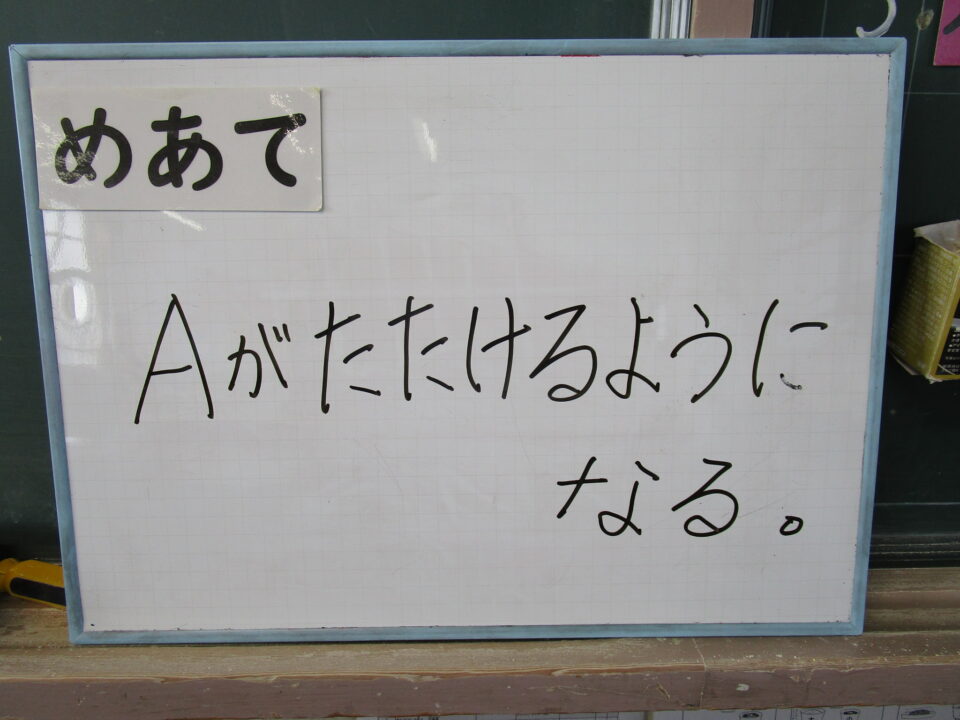 めあて
Aがたたけるように
なる。